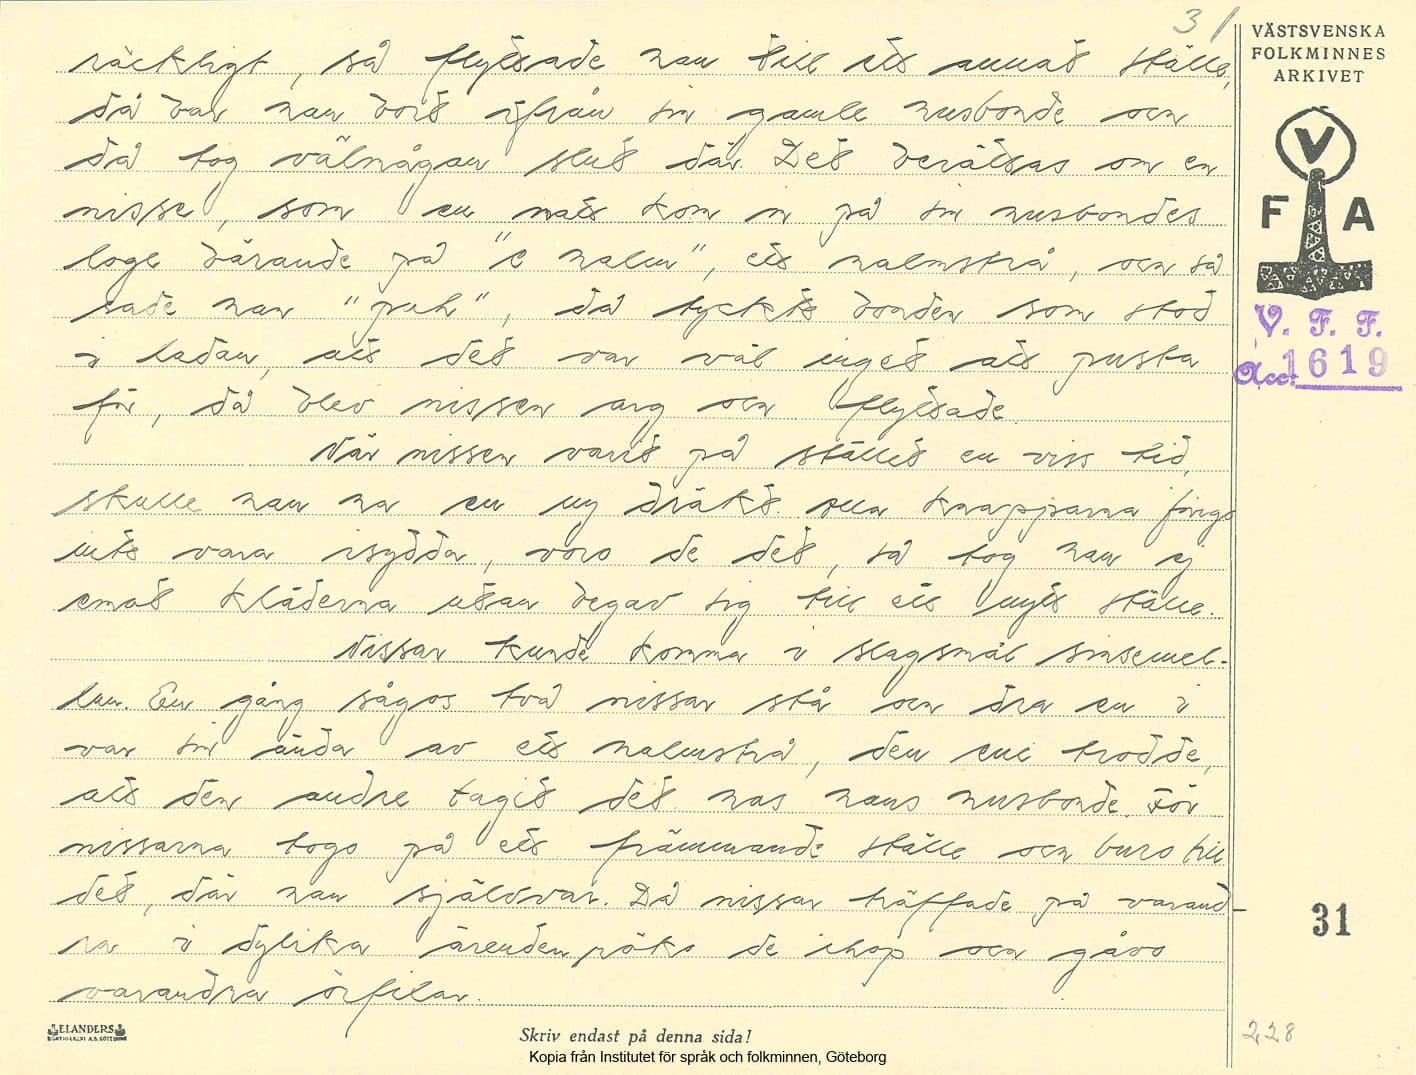 31
VÄSTSVENSKA
FOLKMINNES
ARKIVET
räckligt, så flyttade han till ett annat ställe,
då var han bort ifrån sin gamle husbonde och
då tog välmågan slut där. Det berättas om en
nisse, som en natt kom in på sin husbondes
loge bärande på "e halm", ett halmstrå, och så
sade han "puh", då tyckte bonden som stod
i ladan, att det var väl inget att pusta
för, då blev nissen arg och flyttade.
När nissen varit på stället en viss tid,
skulle han ha en ny dräkt. Men knapparna fingo
inte vara isydda, voro de det, så tog han ej
emot kläderna utan begav sig till ett nytt ställe.
Nissar kunde komma i slagsmål sinsemel-
lan. En gång sågos två nissar stå och dra en i
var sin ända av ett halmstrå, den ene trodde,
att den andre tagit det has hans husbonde. För
nissarna togo på ett främmande ställe och buro till
det, där han själv var. Då nissar träffade på varand-
ra i dylika ärenden, röko de ihop och gåvo
varandra örfilar.
V
F A
V. F. F.
Acc. 1619
31
228
ELANDERS
BOKTRYCKERI A.B. GÖTEBORG
Skriv endast på denna sida!
Kopia från Institutet för språk och folkminnen, Göteborg